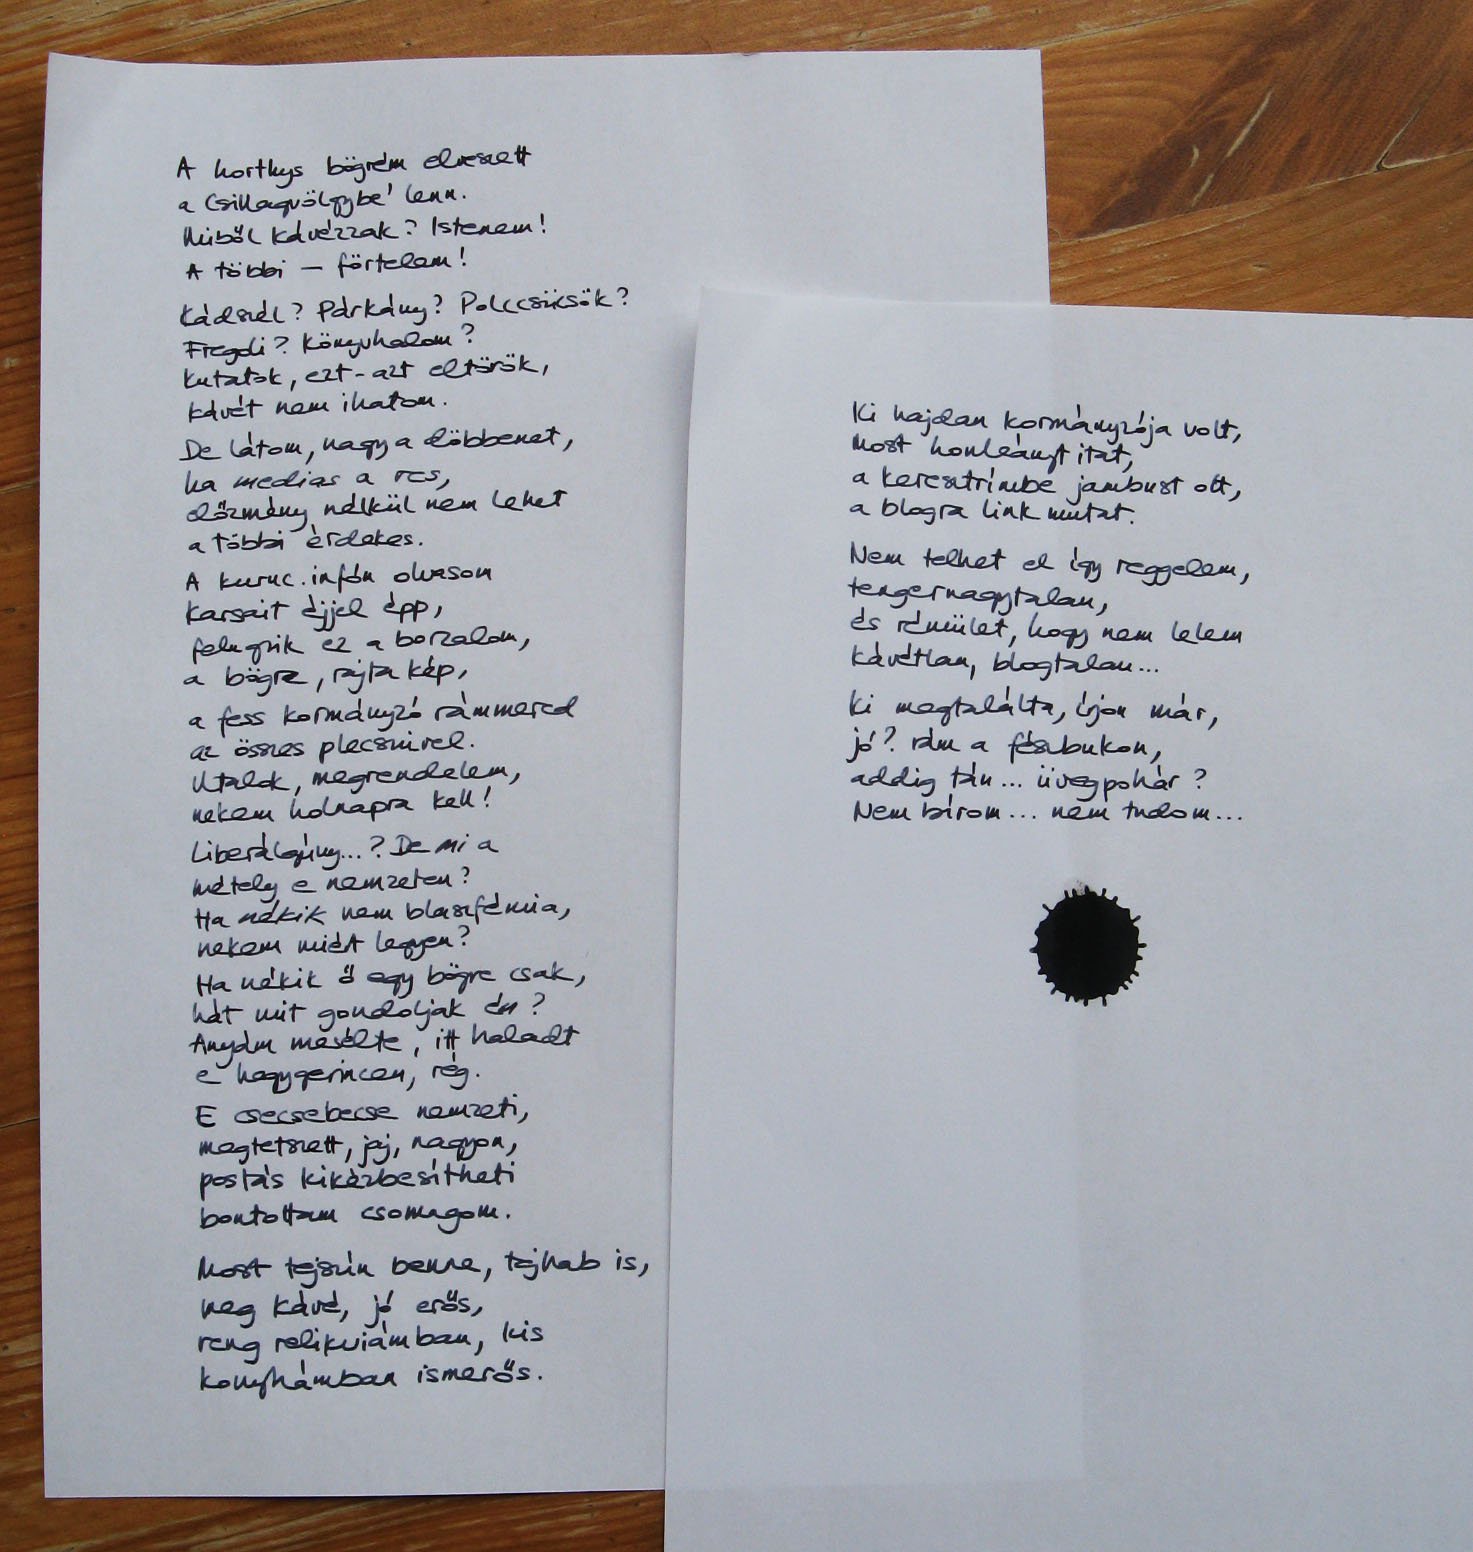 A horthys bögrém elveszett
a Csillagvölgybe' lenn.
Miből kávézzak? Istenem!
A többi – förtelem!
Kádszél? Párkány? Polccsücsök?
Fregoli? Könyvhalom?
Kutatok, ezt-azt eltörök,
kávét nem ihatom.
De látom, nagy a döbbenet,
ha medias a res,
előzmény nélkül nem lehet
a többi érdekes.
A kuruc.infón olvasom
Karsait éjjel épp,
felugrik ez a borzalom,
a bögre, rajta kép,
a fess kormányzó rámmered
az összes plecsnivel.
Utalok, megrendelem,
nekem holnapra kell!
Liberálgúny...? De mi a
métely e nemzeten?
Ha nékik nem blaszfémia,
nekem miért legyen?
Ha nékik ő egy bögre csak,
hát mit gondoljak én?
Anyám mesélte, itt haladt
e hegygerincen, rég.
E csecsebecse nemzeti,
megtetszett, jaj, nagyon,
postás kikézbesítheti
bontottam csomagom.
Most tejszín benne, tejhab is,
meg kávé, jó erős,
reng relikviámban, kis
konyhámban ismerős.
Ki hajdan kormányzója volt,
most honleányt itat,
a keresztrímbe jambust olt,
a blogra link mutat.
Nem telhet el így reggelem,
tengernagytalan,
és rémület, hogy nem lelem
kávétlan, blogtalan...
Ki megtalálta, írjon már,
jó? rám a fészbukon,
addig tán... üvegpohár?
Nem bírom... nem tudom...